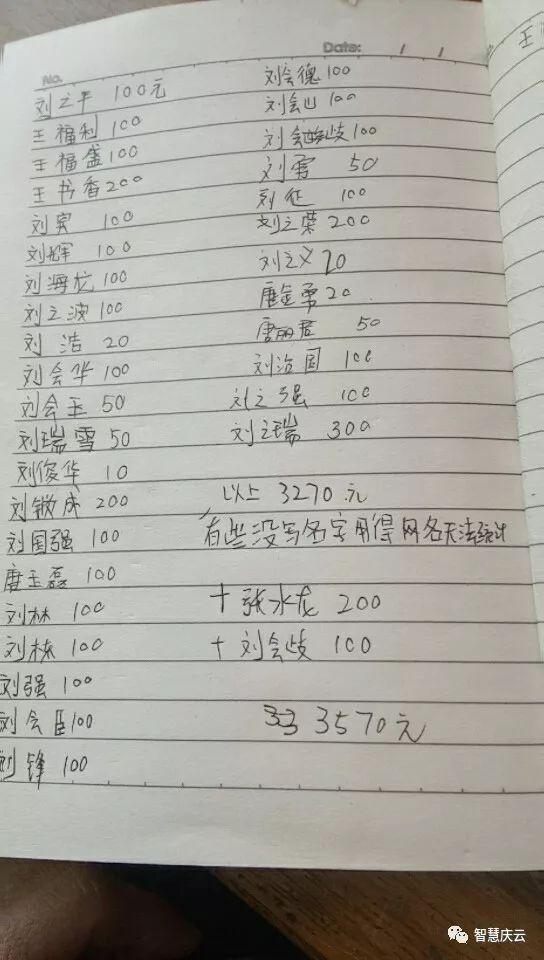 No.
Date:
刘之平 100元
王福利 100
王福盛 100
王书香 200
刘宾 100
刘辉 100
刘海龙 100
刘之波 100
刘浩 20
刘会华 100
刘会玉 50
刘瑞雪 50
刘俊华 10
刘敬成 200
刘国强 100
唐玉磊 100
刘林 100
刘栋 100
刘强 100
刘会臣 100
刘锋 100
刘会德 100
刘会山 100
刘会歧 100
刘雪 50
刘征 100
刘之荣 200
刘之义 20
唐金勇 20
唐丽君 50
刘治国 100
刘之强 100
刘之瑞 300
以上 3270元
有些没写名字用得网名无法统计
+ 张水龙 200
+ 刘会歧 100
3570元
王
智慧庆云